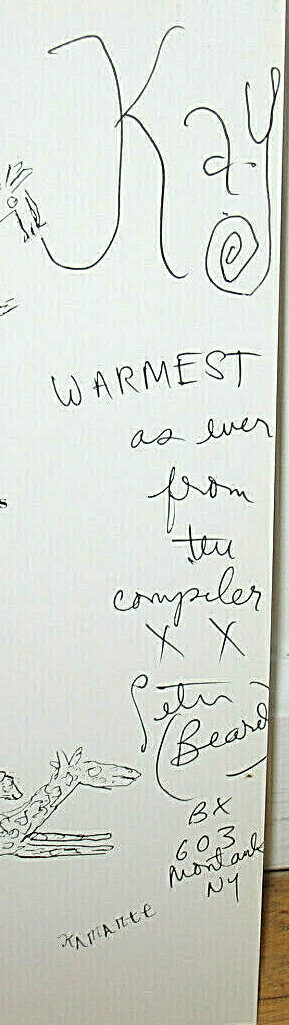 Kay
WARMEST
as ever
from
the
compiler
X X
Peter
(Beard)
BX
603
Montauk
NY
KAMANTE